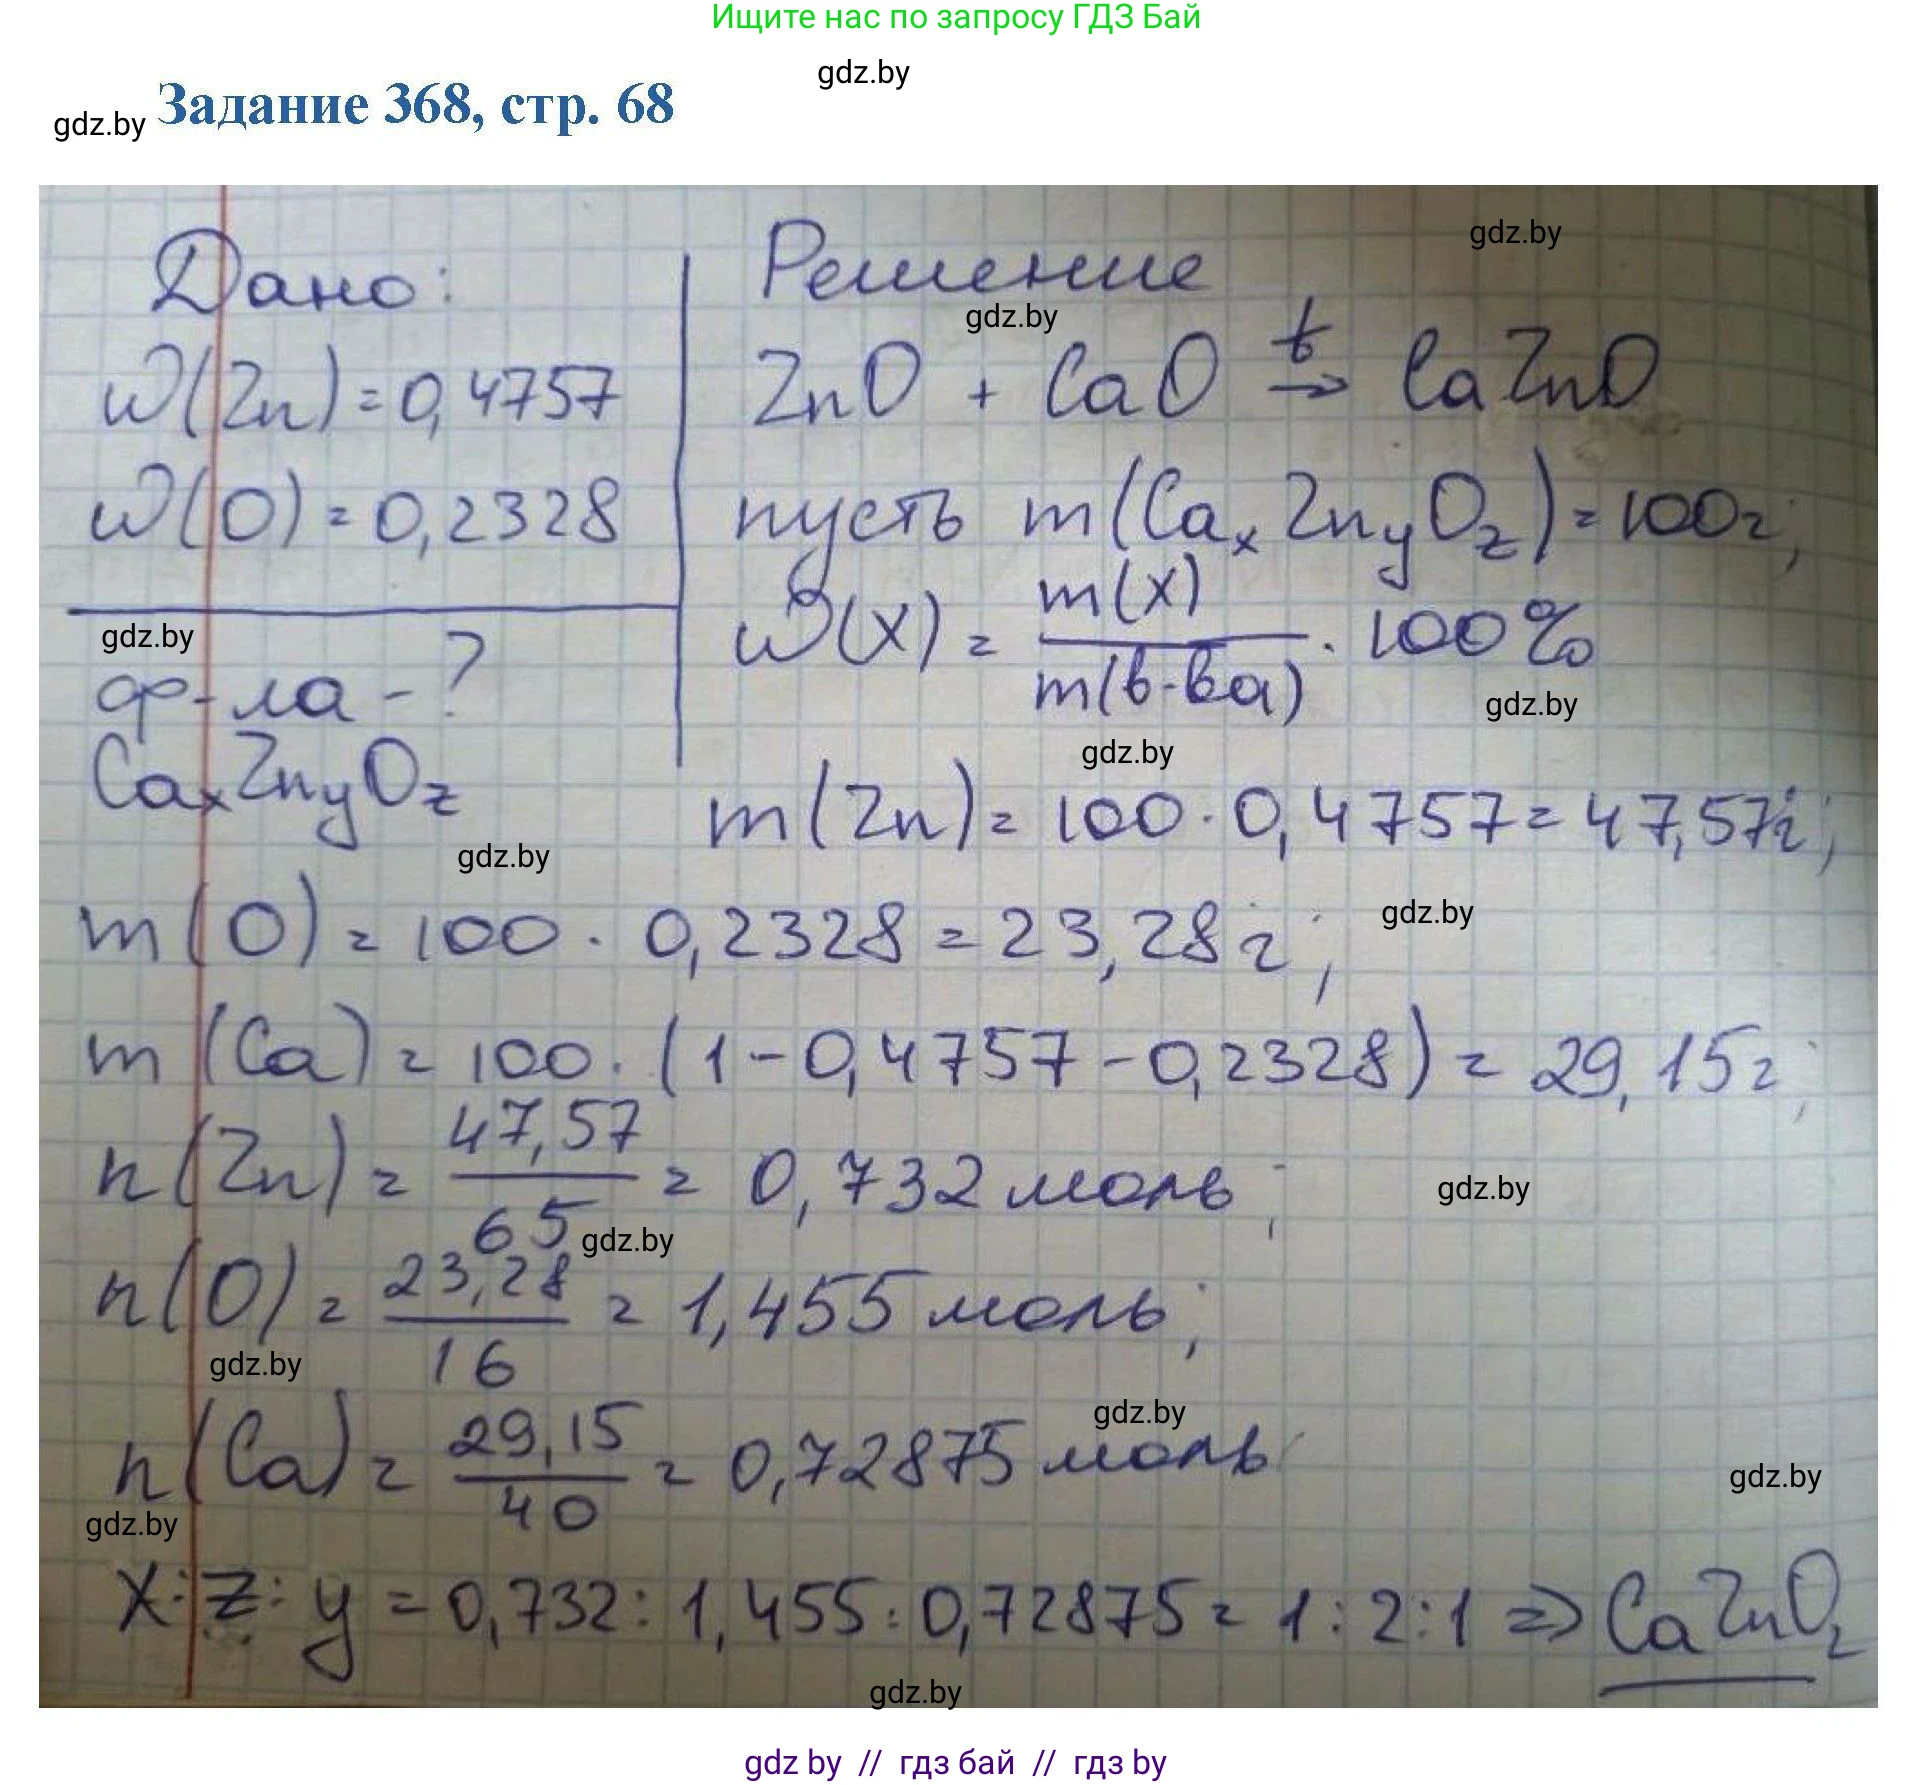 Ищите нас по запросу ГДЗ Бай
gdz.by
gdz.by Задание 368, стр. 68
gdz.by
Дано: Решение
gdz.by
ω(Zn) = 0,4757 ZnO + CaO t→ CaZnO
ω(O) = 0,2328 пусть m(CaxZnyOz) = 100г;
gdz.by
ω(X) = m(x)/m(в-ва) · 100%
ф-ла - ? gdz.by
gdz.by
CaxZnyOz m(Zn) = 100 · 0,4757 = 47,57г;
gdz.by
gdz.by
m(O) = 100 · 0,2328 = 23,28г;
m(Ca) = 100 · (1 - 0,4757 - 0,2328) = 29,15г;
n(Zn) = 47,57/65 = 0,732 моль; gdz.by
gdz.by
n(O) = 23,28/16 = 1,455 моль;
gdz.by
gdz.by
n(Ca) = 29,15/40 = 0,72875 моль
gdz.by
gdz.by
x : z : y = 0,732 : 1,455 : 0,72875 = 1 : 2 : 1 => CaZnO2
gdz.by
gdz by // гдз бай // гдз by